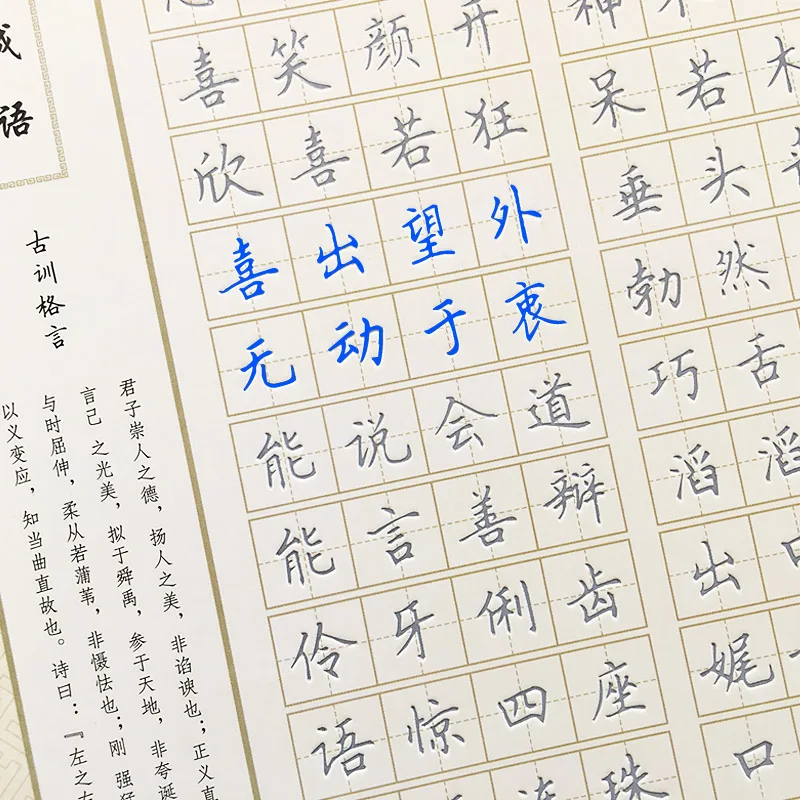 成语
古训格言
君子崇人之德，扬人之美，非谄谀也；正义直
言己 之光美，拟于舜禹，参于天地，非夸诞
与时屈伸，柔从若蒲苇，非慑怯也；刚 强猛
以义变应，知当曲直故也。诗曰：『左之左
喜笑颜开
欣喜若狂
喜出望外
无动于衷
能说会道
能言善辩
伶牙俐齿
语惊四座
连珠
神
呆若木
垂头
勃然
巧舌
滔滔
出口
娓
口